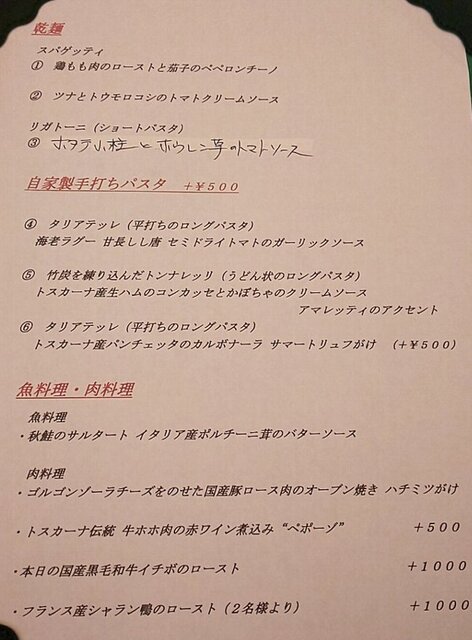 乾麺
スパゲッティ
① 鶏もも肉のローストと茄子のペペロンチーノ
② ツナとトウモロコシのトマトクリームソース
リガトーニ（ショートパスタ）
③ ホタテ小柱とホウレン草のトマトソース
自家製手打ちパスタ ＋￥５００
④ タリアテッレ（平打ちのロングパスタ）
海老ラグー 甘長しし唐 セミドライトマトのガーリックソース
⑤ 竹炭を練り込んだトンナレッリ（うどん状のロングパスタ）
トスカーナ産生ハムのコンカッセとかぼちゃのクリームソース
アマレッティのアクセント
⑥ タリアテッレ（平打ちのロングパスタ）
トスカーナ産パンチェッタのカルボナーラ サマートリュフがけ （＋￥５００）
魚料理・肉料理
魚料理
・秋鮭のサルタート イタリア産ポルチーニ茸のバターソース
肉料理
・ゴルゴンゾーラチーズをのせた国産豚ロース肉のオーブン焼き ハチミツがけ
・トスカーナ伝統 牛ホホ肉の赤ワイン煮込み “ペポーゾ” ＋５００
・本日の国産黒毛和牛イチボのロースト ＋１０００
・フランス産シャラン鴨のロースト（２名様より） ＋１０００